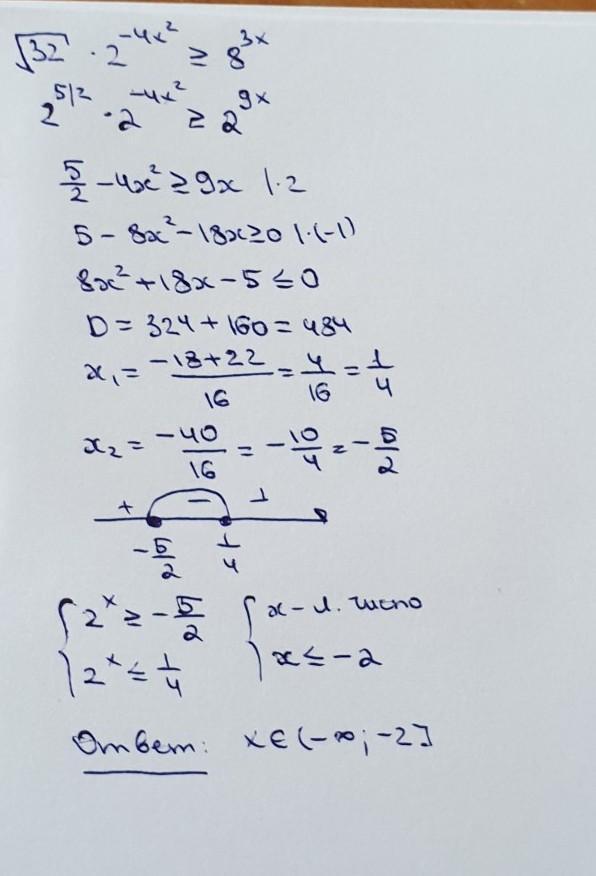 √32 · 2^(-4x²) ≥ 8^(3x)
2^(5/2) · 2^(-4x²) ≥ 2^(9x)
5/2 - 4x² ≥ 9x | · 2
5 - 8x² - 18x ≥ 0 | · (-1)
8x² + 18x - 5 ≤ 0
D = 324 + 160 = 484
x₁ = (-18+22)/16 = 4/16 = 1/4
x₂ = -40/16 = -10/4 = -5/2
+ -
-5/2 1/4
{ 2^x ≥ -5/2 { x - л. число
{ 2^x ≤ 1/4 { x ≤ -2
Ответ: x ∈ (-∞; -2]